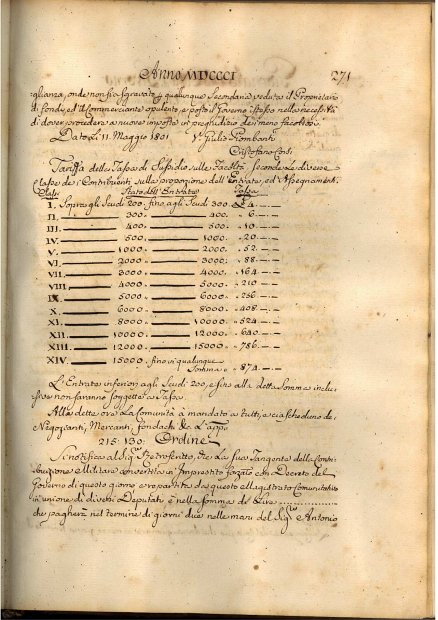 Anno MDCCCI 271
glianza, onde non sia sgravato p qualunque secondaria veduta il Proprietario
di Fondi, ed il Commerciante opulento, e posto il Governo istesso nella necessità
di dover procedere a nuove imposte in pregiudizio dei meno facoltosi
Dato Li 11. Maggio 1801 Vo Giulio Piombanti
Cristofano Cosci
Tariffa della Tassa di Sussidio sulle Facoltà Secondo Le diverse
classe de i Contribuenti sulla proporzione dell'Entrate, ed Assegnamenti.
Classi Stato dell'Entrate Tassa
I. Sopra gli Scudi 200. fino agli Scudi 300. 4
II. 300. 400. 6
III. 400. 500. 10
IV. 500. 1000. 20
V. 1000. 2000. 52
VI. 2000. 3000. 88
VII. 3000. 4000. 164
VIII. 4000. 5000. 210
IX. 5000. 6000. 256
X. 6000. 8000. 408
XI. 8000. 10000. 524
XII. 10000. 12000. 640
XIII. 12000. 15000. 786
XIV. 15000. fino in qualunque
Somma 874
L'Entrate inferiori agli Scudi 200, e fino alla detta Somma inclu
sive non saranno soggette a Tassa.
Alle dette ore La Comunità à mandato a tutti, e a ciascheduno de
Negozianti, Mercanti, fondachi &c. L'app.a
215. 130. Ordine
Si notifica al Sig.e Retroscritto, che La sua Tangente della Contri
buzione Militare convertita in Imprestito forzato con Decreto del
Governo di questo giorno e repartita da questo Magistrato Comunitativo
in unione di diversi Deputati è nella somma di Lire
che pagherà nel termine di giorni due nelle mani del Sig.re Antonio